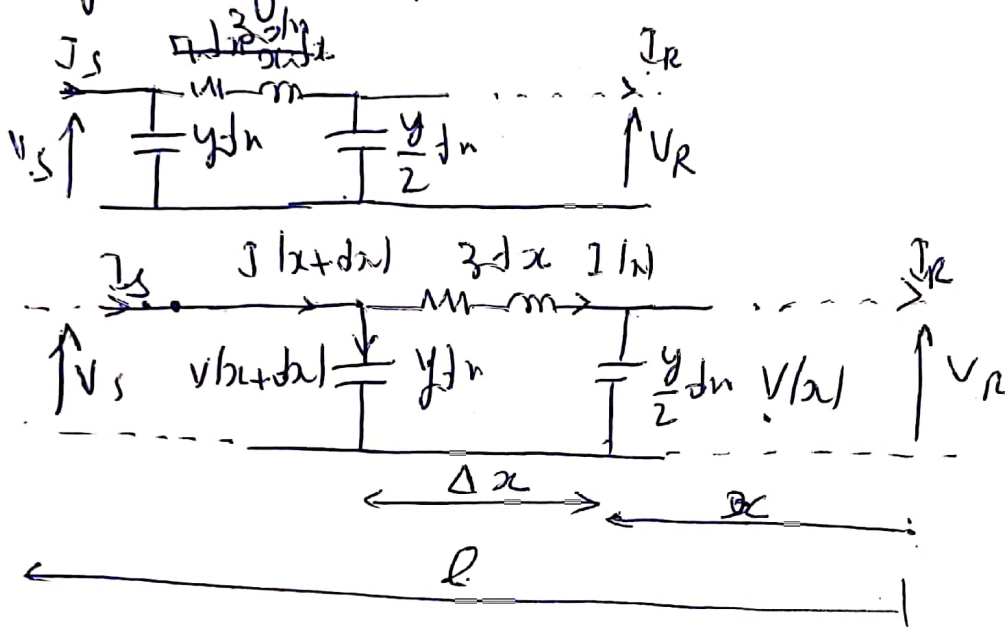 I_S z dx I_R
V_S ydx y/2 dx V_R
I_S I(x+dx) z dx I(x) I_R
V_S V(x+dx) ydx y/2 dx V(x) V_R
Δx x
l